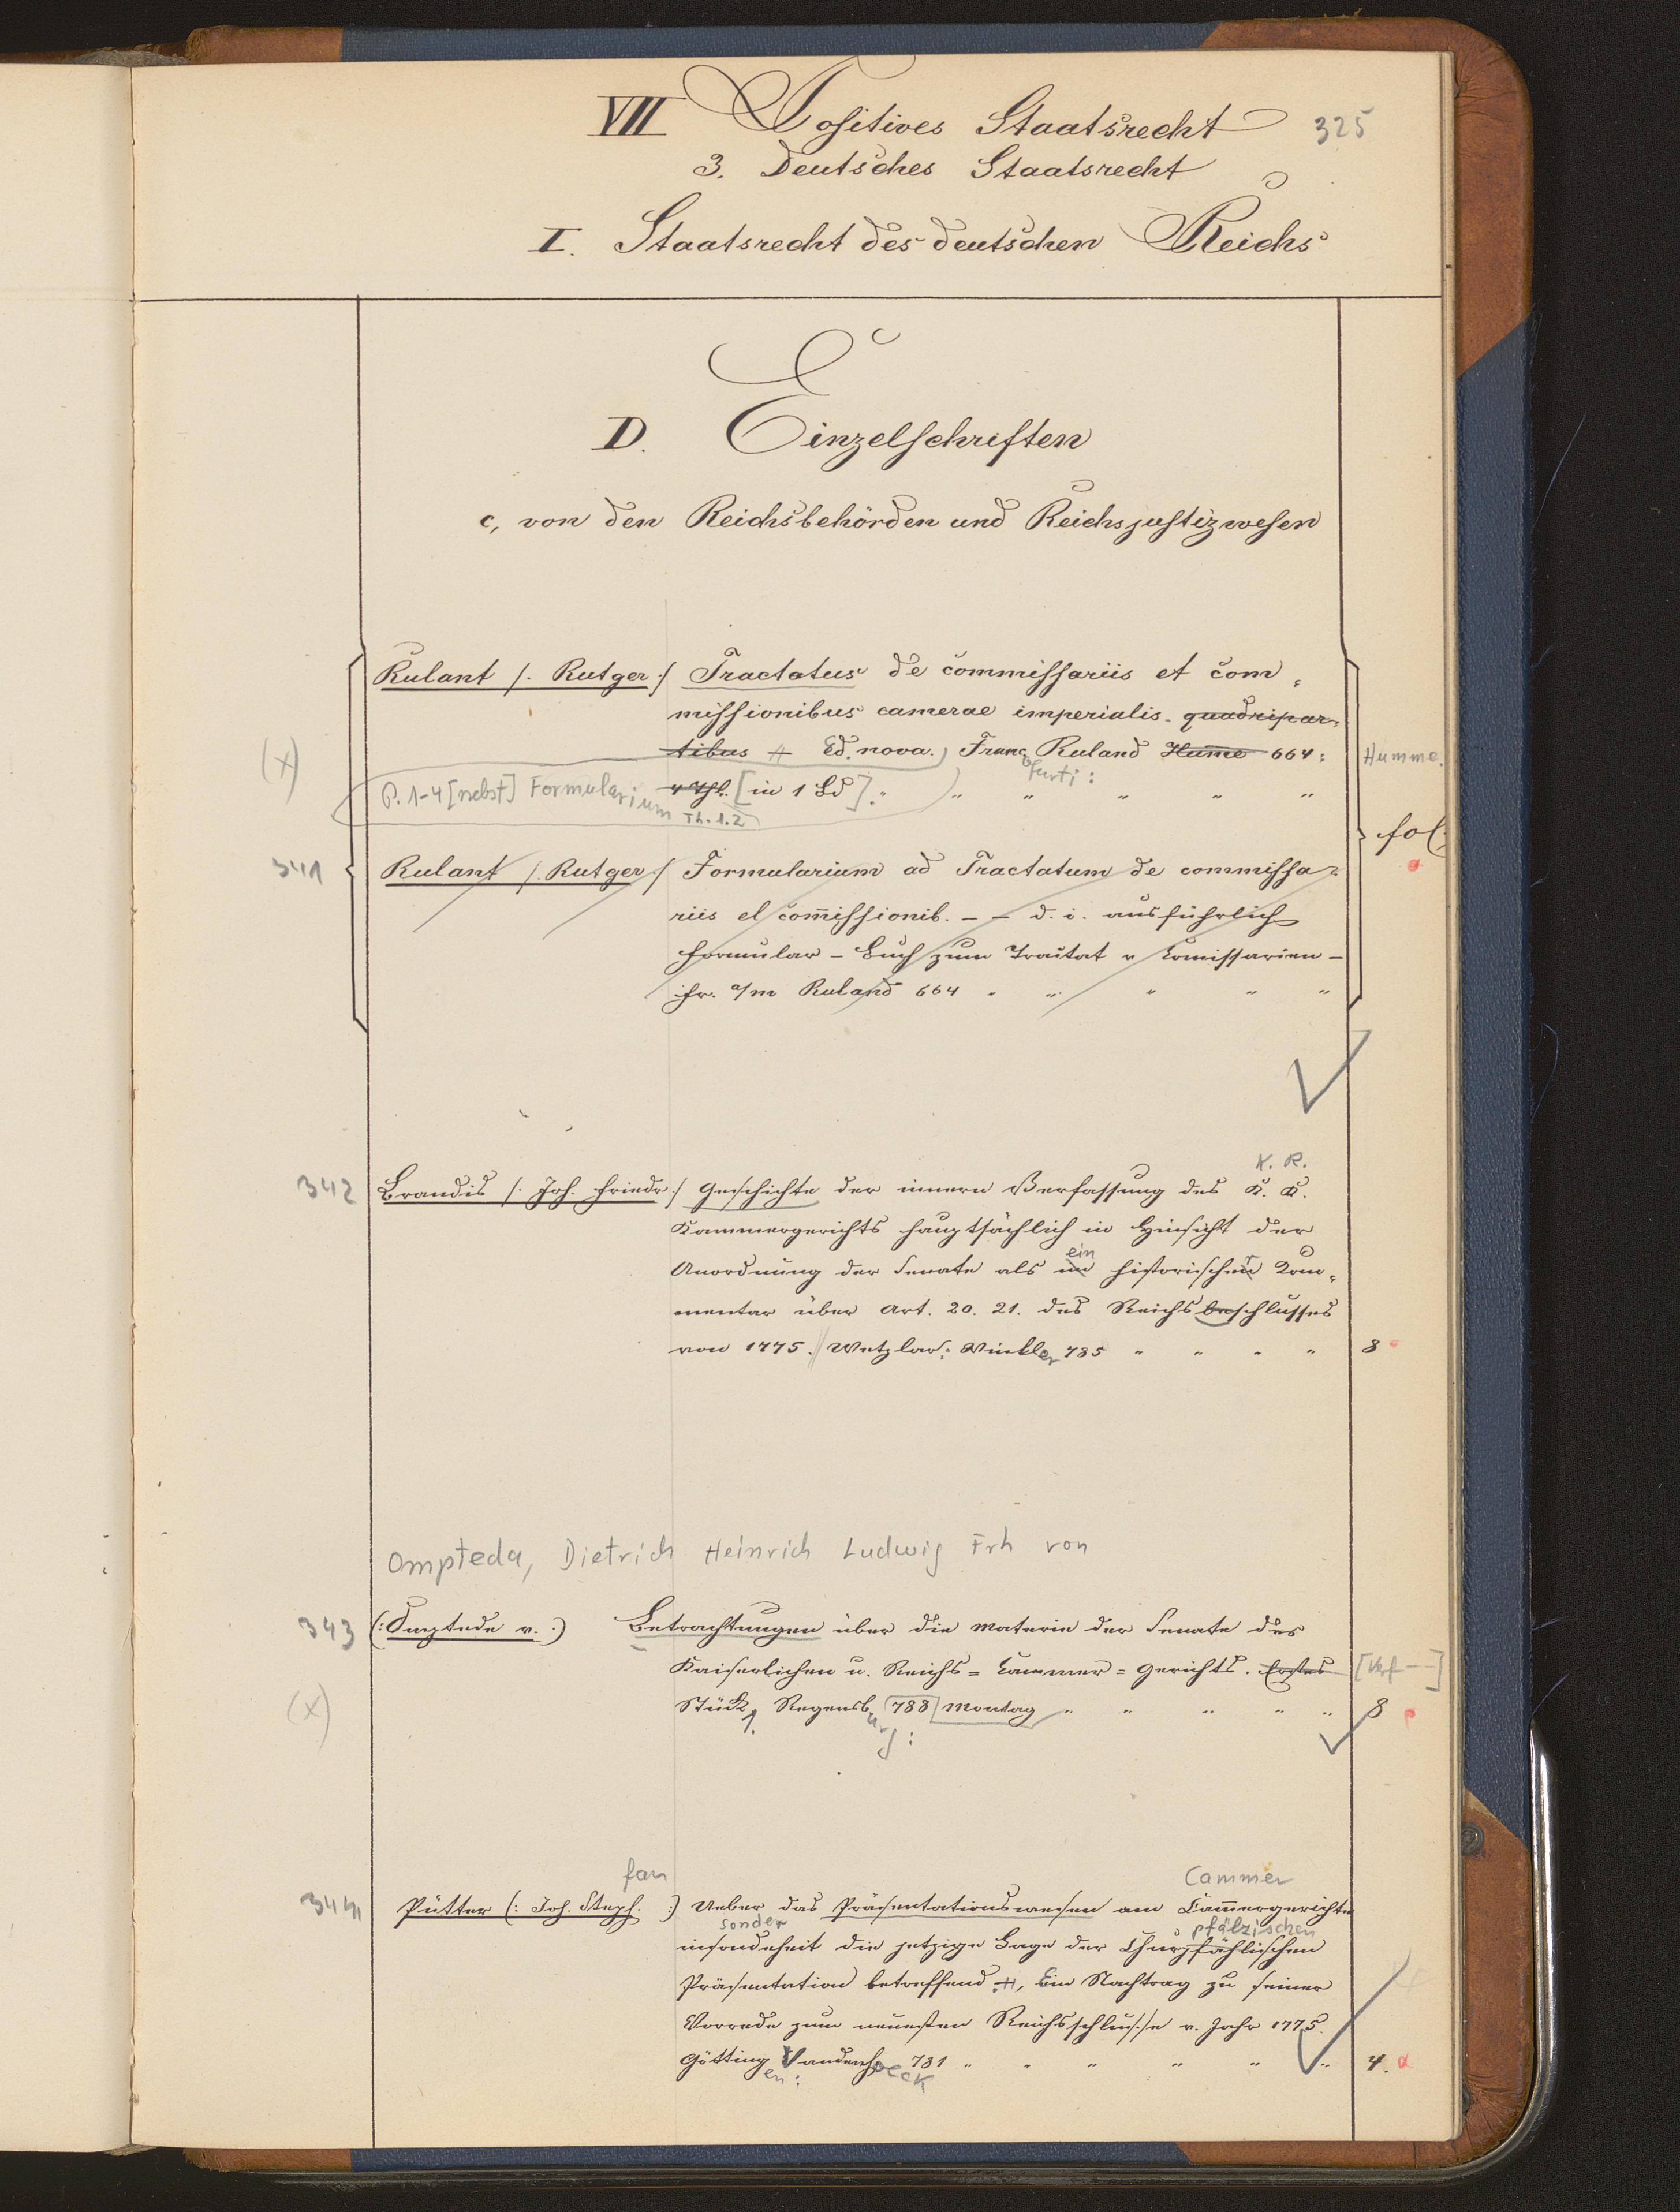 VII Positives Staatsrecht 325
3. Deutsches Staatsrecht
I. Staatsrecht des deutschen Reichs
D. Einzelschriften
c, von den Reichsbehörden und Reichsjustizwesen
Rulant /. Rutger ./ Tractatus de commissariis et com-
missionibus camerae imperialis. quadripar-
(x) tibus # Ed. nova. Franc Ruland Hume 664: Humme.
ofurti:
P. 1-4 [nebst] Formularium Th. 1.2 4 Thl. [in 1 Bd]. " " " " "
fol.
341 Rulant /. Rutger ./ Formularium ad Tractatum de commissa-
riis et com̄issionib. - - d. i. ausführlich
Formular - Buch zum Tractat v Com̄issarien -
Fr. a/m Ruland 664 " " " " "
K. R.
342 Brandis /: Joh. Friedr :/ Geschichte der innern Verfassung des K. R.
Kammergerichts hauptsächlich in Hinsicht der
ein
Anordnung der Senate als historischer Kom-
mentar über Art. 20. 21. des Reichs beschlusses
von 1775. Wetzlar: Winkler 785 " " " " 8
Ompteda, Dietrich Heinrich Ludwig Frh von
343 (: Omptede v. :) Betrachtungen über die Materie der Senate des
Kaiserlichen u. Reichs = Cammer = Gerichts. Erstes [Verf - -]
(x) Stück 1. Regensburg: 788 Montag " " " " " 8
fan Cammer
344 Pütter (: Joh. Steph. :) Ueber das Präsentationswesen am Cam̄ergerichte
sonder pfälzischen
insondeheit die jetzige Lage der Churpfählischen
Präsentation betreffend #, Ein Nachtrag zu seiner
Vorrede zum neuesten Reichsschlusse v. Jahr 1775.
Götting en: Vandenhoeck 781 " " " " " " 4.